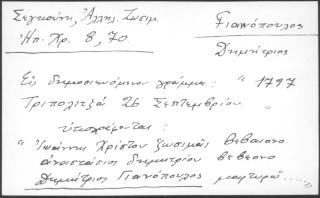 Σεγκούνη, Ἀλληλ. Ζωσιμ.
Ἠπ. Χρ. 8, 70.
Γιαννόπουλος
Δημήτριος
Εἰς δημοσιευόμενον γράμμα: " 1797
Τριπολιτζά 26 Σεπτεμβρίου. "
ὑπογράφονται:
"Ἰωάννη Χρίστου ζωσιμᾶς βεβαιόνο
ἀναστάσιο δημητρίου βεβεονο
Δημήτριος Γιανόπουλος μαρτυρῶ.....„